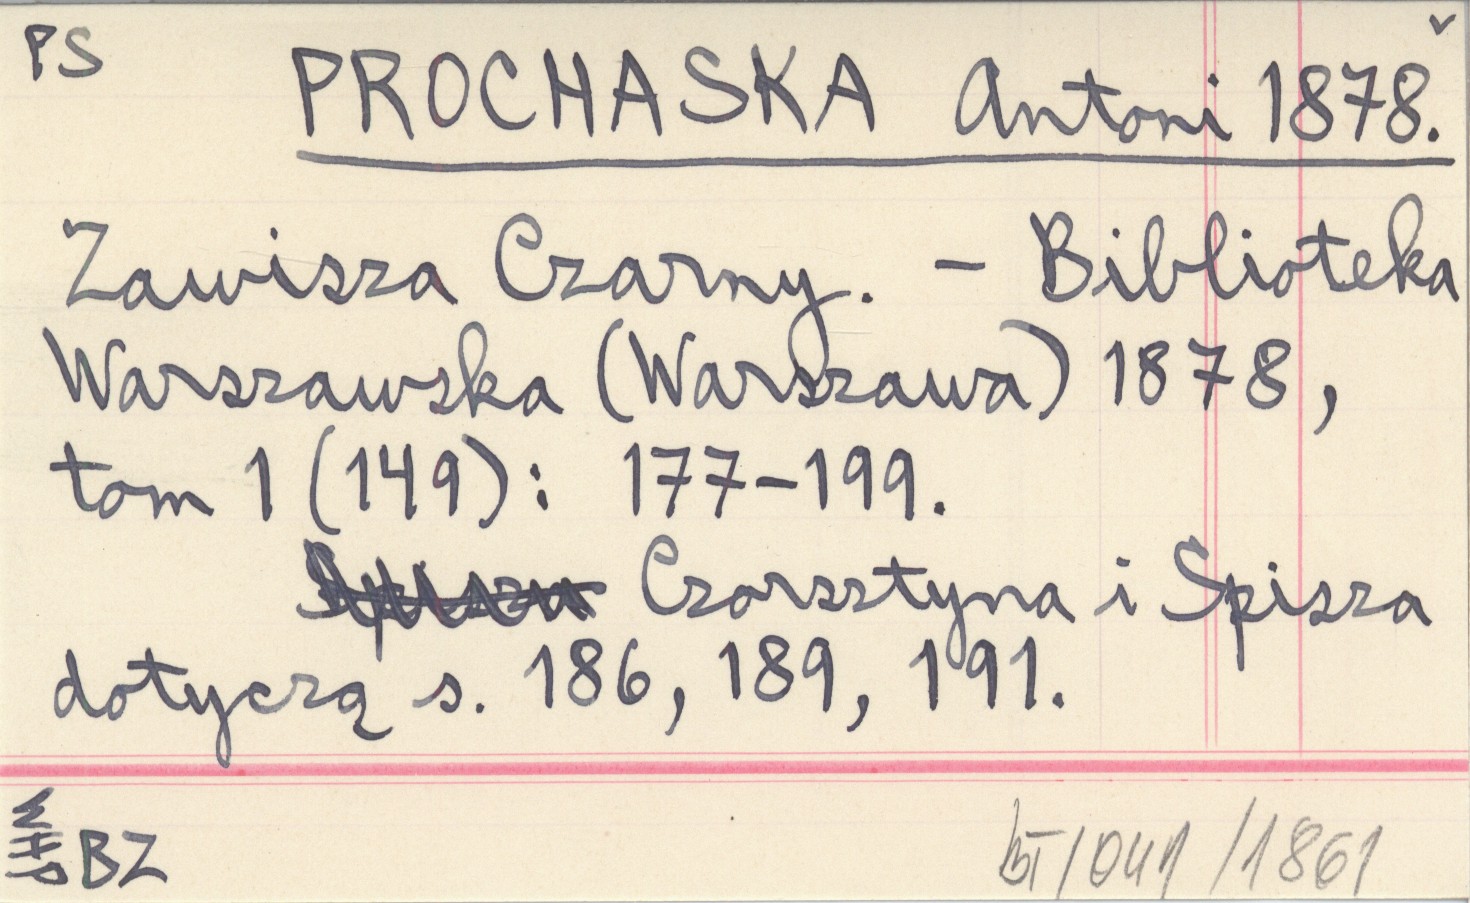 PS
PROCHASKA Antoni 1878.
Zawisza Czarny. – Biblioteka
Warszawska (Warszawa) 1878,
tom 1 (149): 177–199.
Czorsztyna i Spisza
dotyczą s. 186, 189, 191.
BZ
/1861